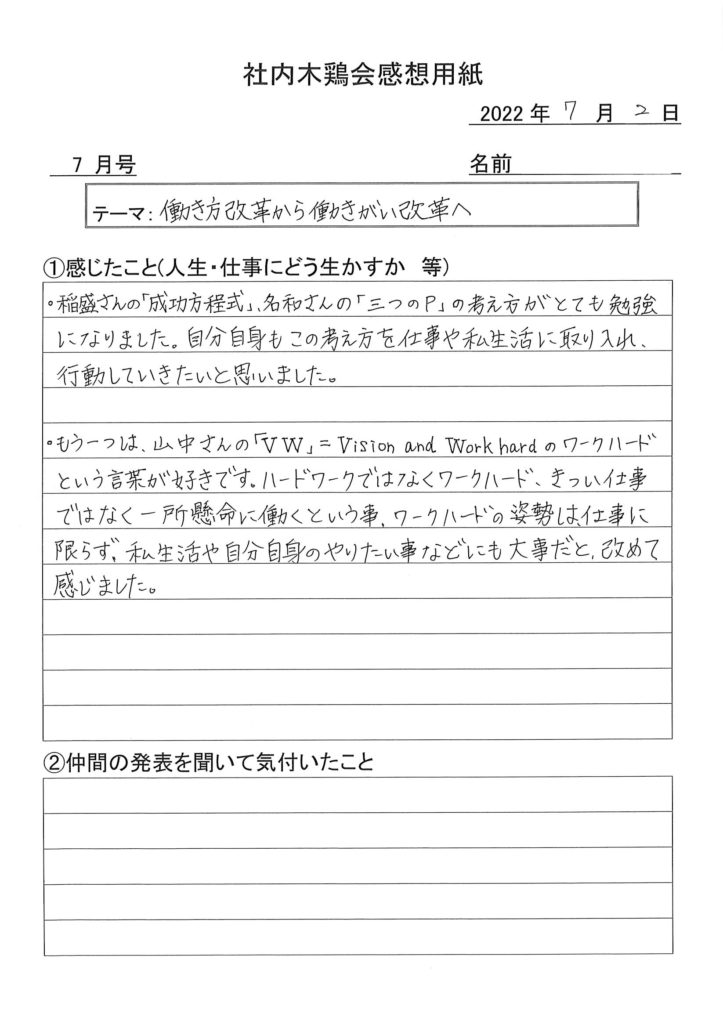 社内木鶏会感想用紙
2022 年 7 月 2 日
7 月号
名前
テーマ: 働き方改革から働きがい改革へ
①感じたこと(人生・仕事にどう生かすか 等)
・稲盛さんの「成功方程式」、名和さんの「三つのP」の考え方がとても勉強
になりました。自分自身もこの考え方を仕事や私生活に取り入れ、
行動していきたいと思いました。
・もう一つは、山中さんの「VW」=Vision and Work hardのワークハード
という言葉が好きです。ハードワークではなくワークハード、きつい仕事
ではなく一所懸命に働くという事、ワークハードの姿勢は、仕事に
限らず、私生活や自分自身のやりたい事などにも大事だと、改めて
感じました。
②仲間の発表を聞いて気付いたこと